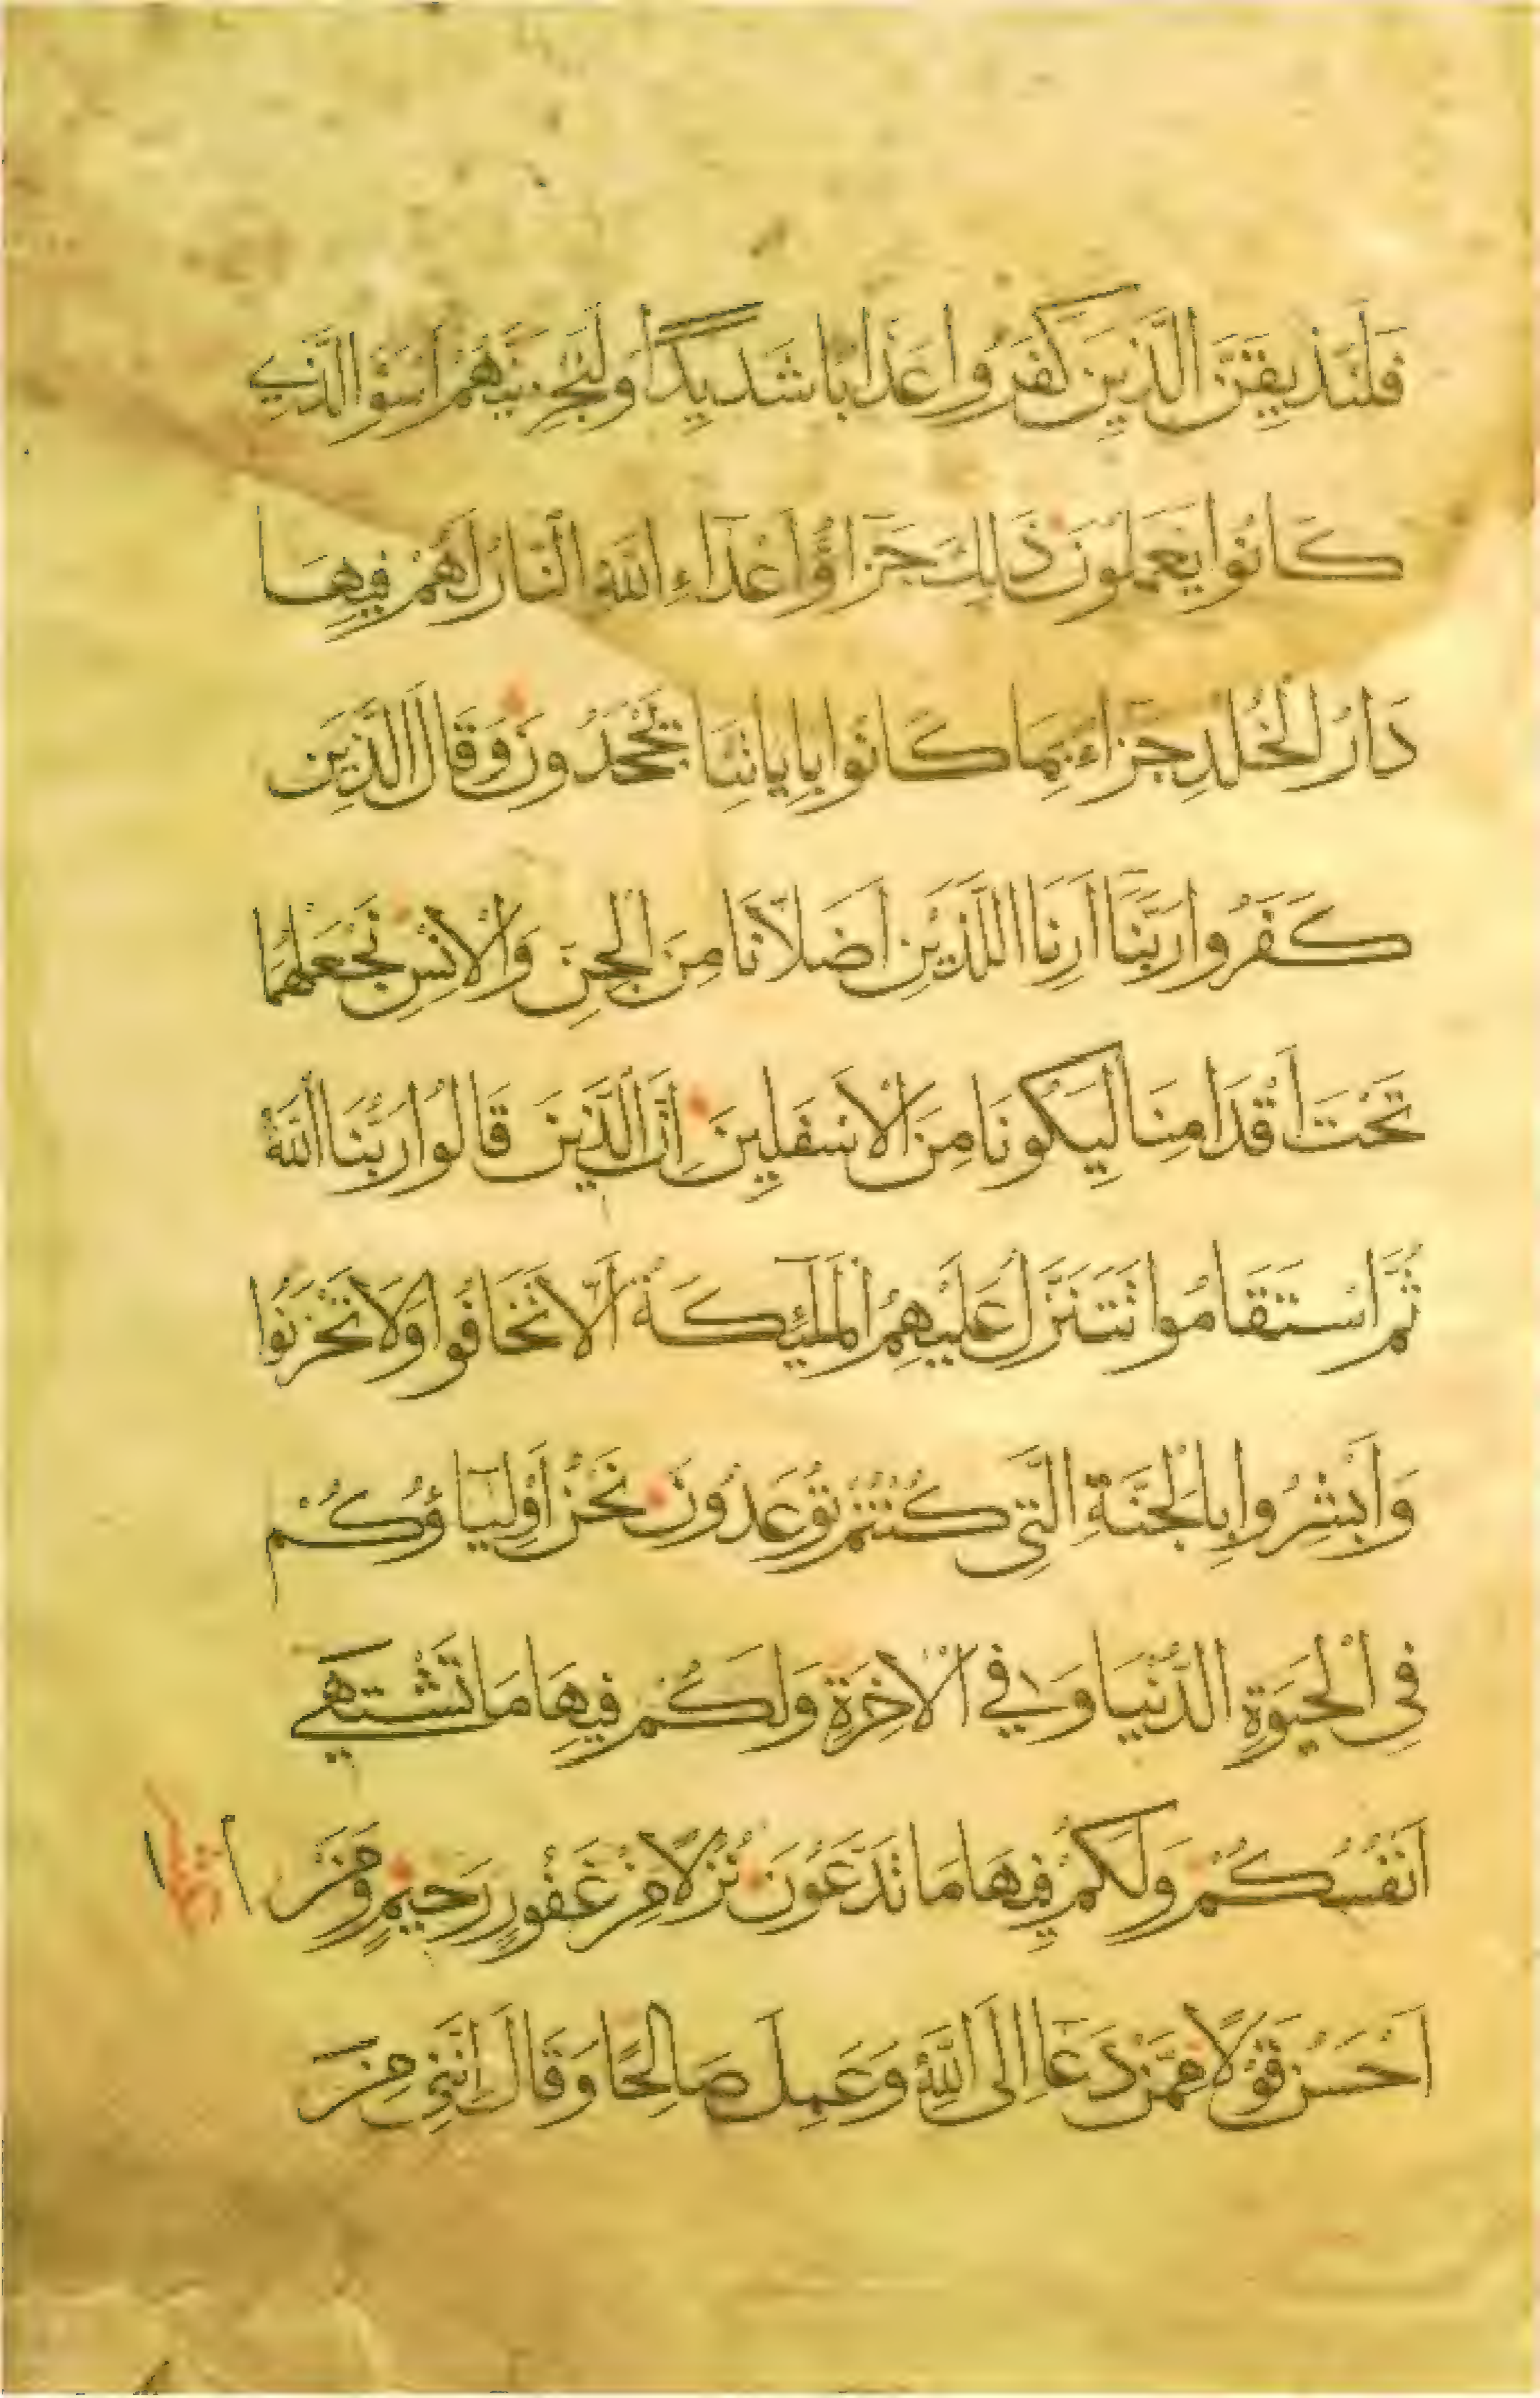 فَلَنُذِيقَنَّ الَّذِينَ كَفَرُوا عَذَابًا شَدِيدًا وَلَنَجْزِيَنَّهُمْ اَسْوَاَ الَّذِي
كَانُوا يَعْمَلُونَ ذَالِكَ جَزَاؤُا اَعْدَاءِ اللّٰهِ النَّارُ لَهُمْ فِيهَا
دَارُ الْخُلْدِ جَزَاءً بِمَا كَانُوا بِايَاتِنَا يَجْحَدُونَ وَقَالَ الَّذِينَ
كَفَرُوا رَبَّنَا اَرِنَا اللَّذَيْنِ اَضَلَّانَا مِنَ الْجِنِّ وَالْاِنْسِ نَجْعَلْهُمَا
تَحْتَ اَقْدَامِنَا لِيَكُونَا مِنَ الْاَسْفَلِينَ اِنَّ الَّذِينَ قَالُوا رَبُّنَا اللّٰهُ
ثُمَّ اسْتَقَامُوا تَتَنَزَّلُ عَلَيْهِمُ الْمَلٰئِكَةُ اَلَّا تَخَافُوا وَلَا تَحْزَنُوا
وَاَبْشِرُوا بِالْجَنَّةِ الَّتِي كُنْتُمْ تُوعَدُونَ نَحْنُ اَوْلِيَاؤُكُمْ
فِي الْحَيٰوةِ الدُّنْيَا وَفِي الْاٰخِرَةِ وَلَكُمْ فِيهَا مَا تَشْتَهِي
اَنْفُسُكُمْ وَلَكُمْ فِيهَا مَا تَدَّعُونَ نُزُلًا مِنْ غَفُورٍ رَحِيمٍ وَمَنْ
اَحْسَنُ قَوْلًا مِمَّنْ دَعَا اِلَى اللّٰهِ وَعَمِلَ صَالِحًا وَقَالَ اِنَّنِي مِنَ